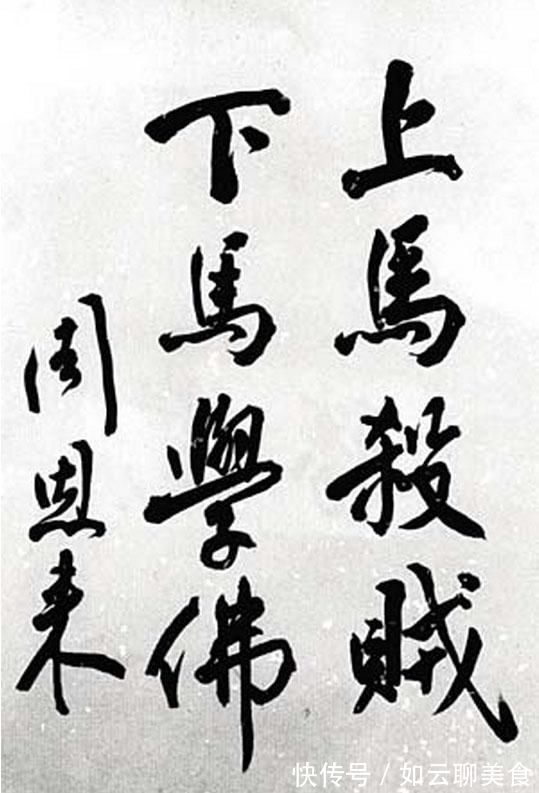 上馬殺賊
下馬學佛
周恩来
快传号/如云聊美食